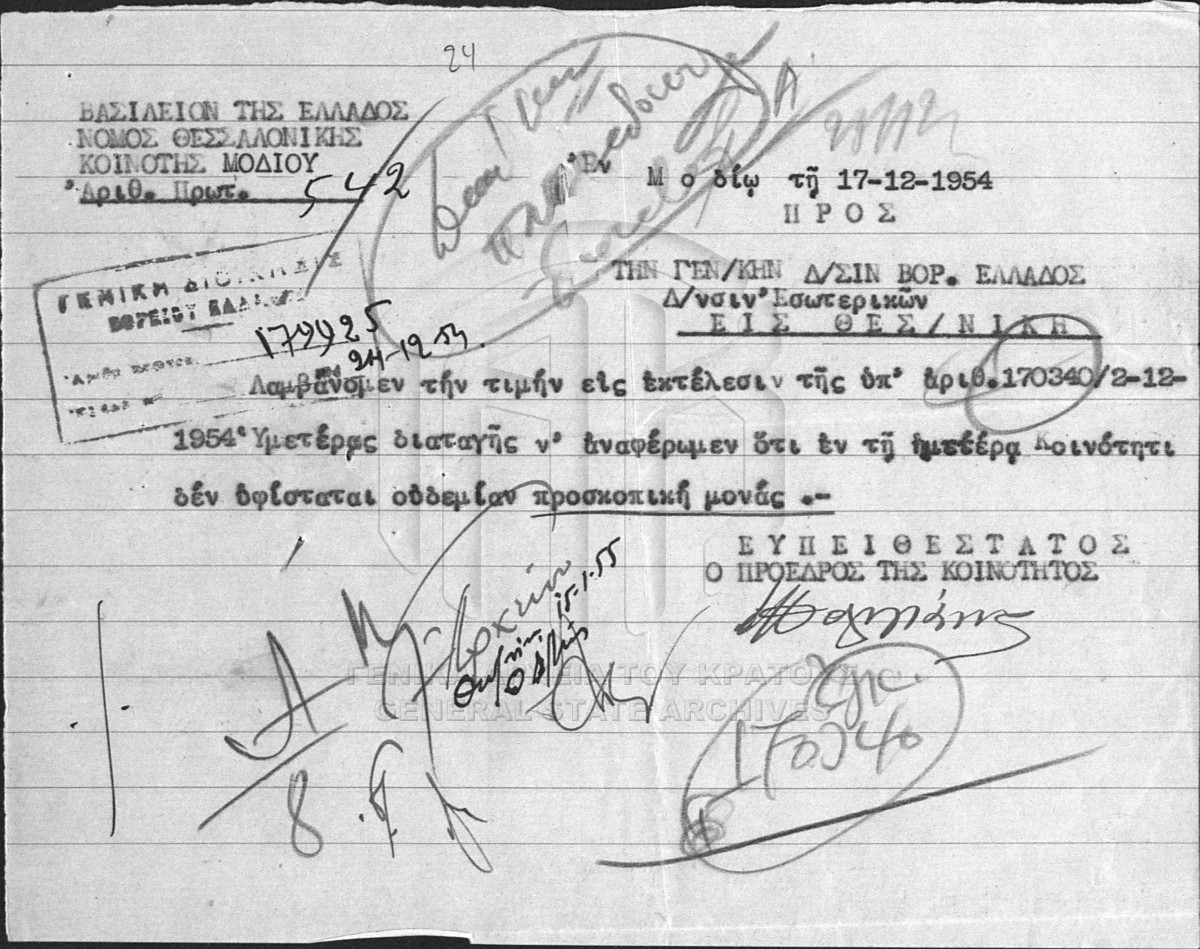 24
ΒΑΣΙΛΕΙΟΝ ΤΗΣ ΕΛΛΑΔΟΣ
ΝΟΜΟΣ ΘΕΣΣΑΛΟΝΙΚΗΣ
ΚΟΙΝΟΤΗΣ ΜΟΔΙΟΥ
Ἀριθ. Πρωτ. 542
Ἐν Μοδίῳ τῇ 17-12-1954
ΠΡΟΣ
ΤΗΝ ΓΕΝ/ΚΗΝ Δ/ΣΙΝ ΒΟΡ. ΕΛΛΑΔΟΣ
Δ/νσιν Ἐσωτερικῶν
ΕΙΣ ΘΕΣ/ΝΙΚΗ
ΓΕΝΙΚΗ ΔΙΟΙΚΗΣΙΣ
ΒΟΡΕΙΟΥ ΕΛΛΑΔΟΣ
179925
24-12-54.
Λαμβάνομεν τήν τιμήν εἰς ἐκτέλεσιν τῆς ὑπ' ἀριθ.170340/2-12-
1954 Ὑμετέρας διαταγῆς ν' ἀναφέρωμεν ὅτι ἐν τῇ ἡμετέρᾳ Κοινότητι
δέν ὑφίσταται οὐδεμίαν προσκοπική μονάς .-
ΕΥΠΕΙΘΕΣΤΑΤΟΣ
Ο ΠΡΟΕΔΡΟΣ ΤΗΣ ΚΟΙΝΟΤΗΤΟΣ
Ἀρχεῖον
15-1-55
170340
Α
8
ΓΕΝΙΚΑ ΑΡΧΕΙΑ ΤΟΥ ΚΡΑΤΟΥΣ
GENERAL STATE ARCHIVES